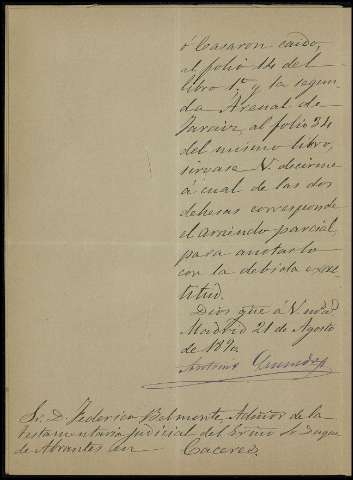 ó Casaron caido,
al folio 14 del
libro 1º y la segun-
da Arenal de
al folio 34
del mismo libro,
sirvase V. decirme
á cual de las dos
dehesas corresponde
el arriendo parcial,
para anotarlo
con la debida exac-
titud.
Dios gue á V. m.s a.s
Madrid 21 de Agosto
de
Antonio
Sr. D. Federico Belmonte, Admor de la
testamentaria judicial del Excmo Sr Duque
de Abrantes en Caceres.